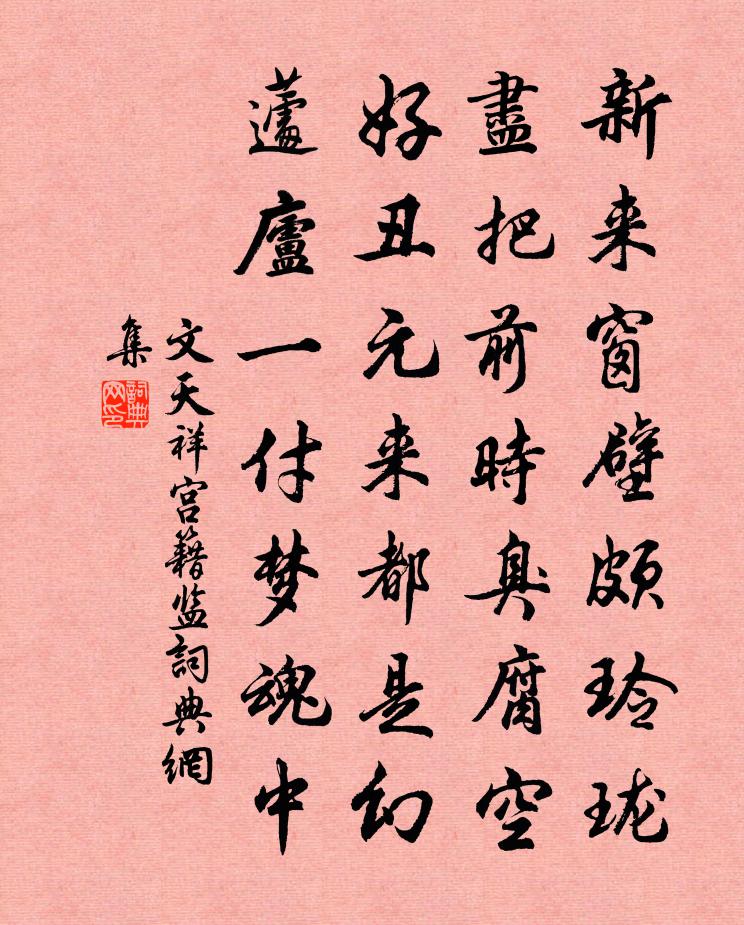 新来窗壁颇玲珑
盡把前時臭腐空
好丑元来都是幻
蘧廬一付梦魂中
文天祥宫籍监詞典網
集
詞典网印